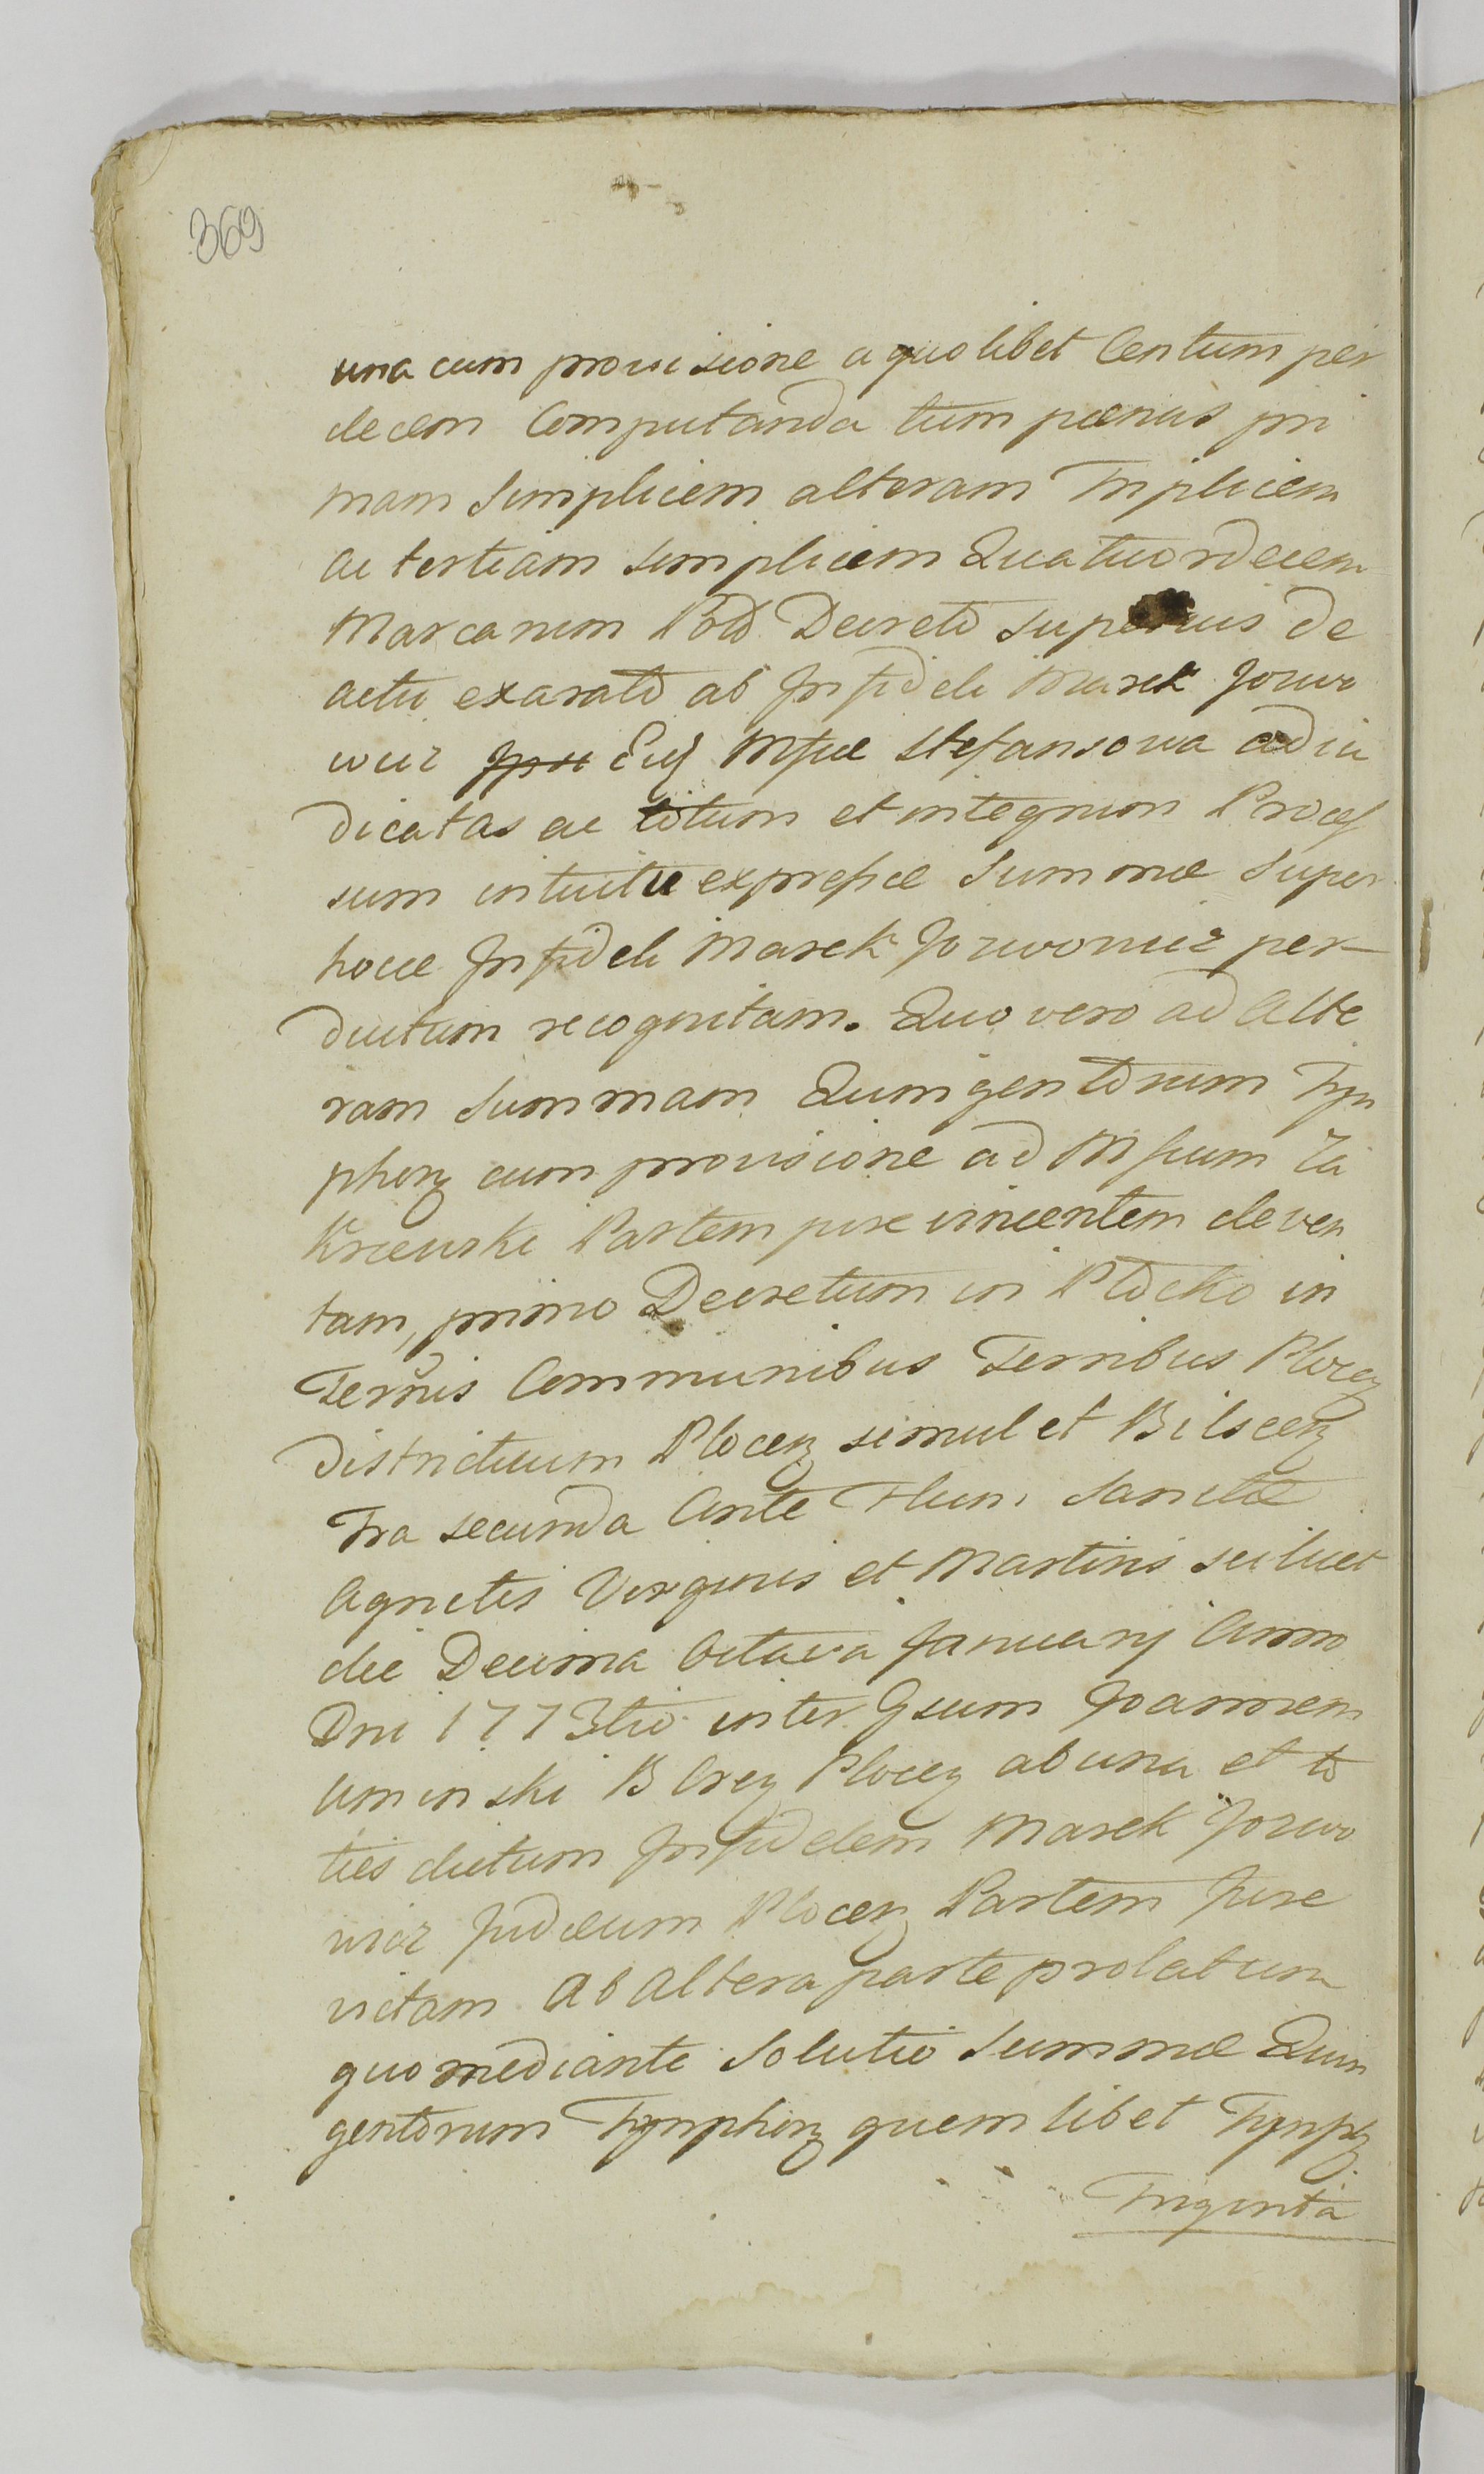 369
una cum provisione a quolibet Centum per
decem Computanda tum pænas pri
mam Simplicem alteram Triplicem
ac tertiam simplicem Quatuordecem
Marcarum Pold Decreto superius de
actu exarato ab Infideli Marek Jozwo
wicz Ejq Mfcæ Stefansowa adiu
dicatas ac totum et integrum Proces
sum intuitu expressæ Summæ super
hocce Infideli Marek Jozwowicz per
ductum recognitam. Quo vero ad Alte
ram Summam Quingentorum Tyn
phonz cum provisione ad Mfcum Za
krzewski Partem jure vincentem deven
tam, primo Decretum in Plocko in
Terrnis Communibus Terribus Plocenz
Districtuum Plocenz simul et Bilscenz
Fra secunda Ante Flum Sanctæ
Agnetis Virginis et Martiris scilicet
die Decima Octava Januarij Anno
Dni 1773tio inter Gsum Joannem
Uminski B Crez Plocez ab una et to
ties dictum Infidelem Marek Jozwo
wicz Judæum Plocenz Partem Jure
victam Ab Altera parte prolatum
quo mediante Solutio Summæ Quin
gentorum Tynphonz quemlibet Tynpfz
Triginta